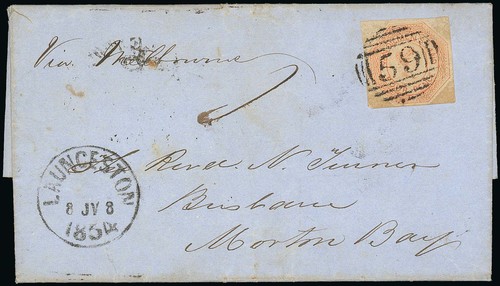 Via Melbourne
59
Revd. N. Turner
Brisbane
Morton Bay
LAUNCESTON
8 JY 8
1854